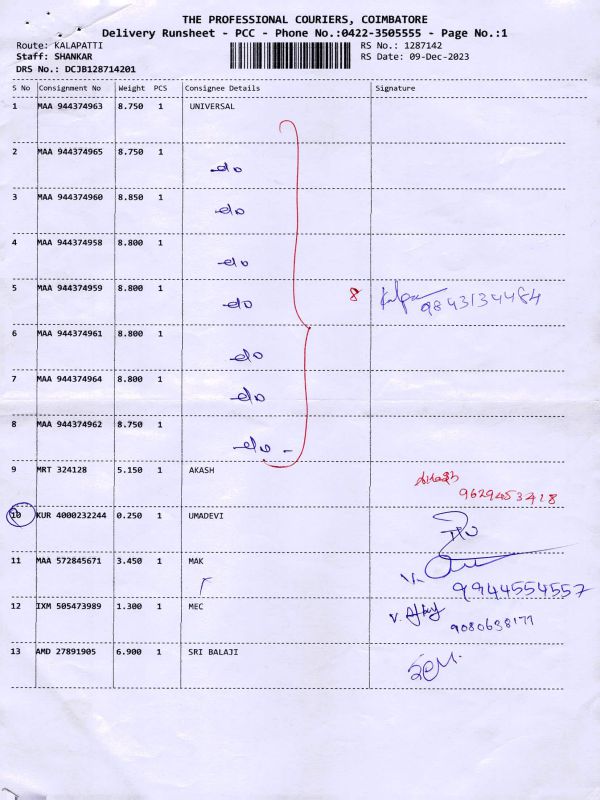 THE PROFESSIONAL COURIERS, COIMBATORE
Delivery Runsheet - PCC - Phone No.:0422-3505555 - Page No.:1
Route: KALAPATTI RS No.: 1287142
Staff: SHANKAR RS Date: 09-Dec-2023
DRS No.: DCJB128714201
S No Consignment No Weight PCS Consignee Details Signature
1 MAA 944374963 8.750 1 UNIVERSAL
2 MAA 944374965 8.750 1 do
3 MAA 944374960 8.850 1 do
4 MAA 944374958 8.800 1 do
5 MAA 944374959 8.800 1 do 8 9843134484
6 MAA 944374961 8.800 1 do
7 MAA 944374964 8.800 1 do
8 MAA 944374962 8.750 1 do -
9 MRT 324128 5.150 1 AKASH
9629453418
10 KUR 4000232244 0.250 1 UMADEVI
11 MAA 572845671 3.450 1 MAK
9944554557
12 IXM 505473989 1.300 1 MEC
9080638177
13 AMD 27891905 6.900 1 SRI BALAJI